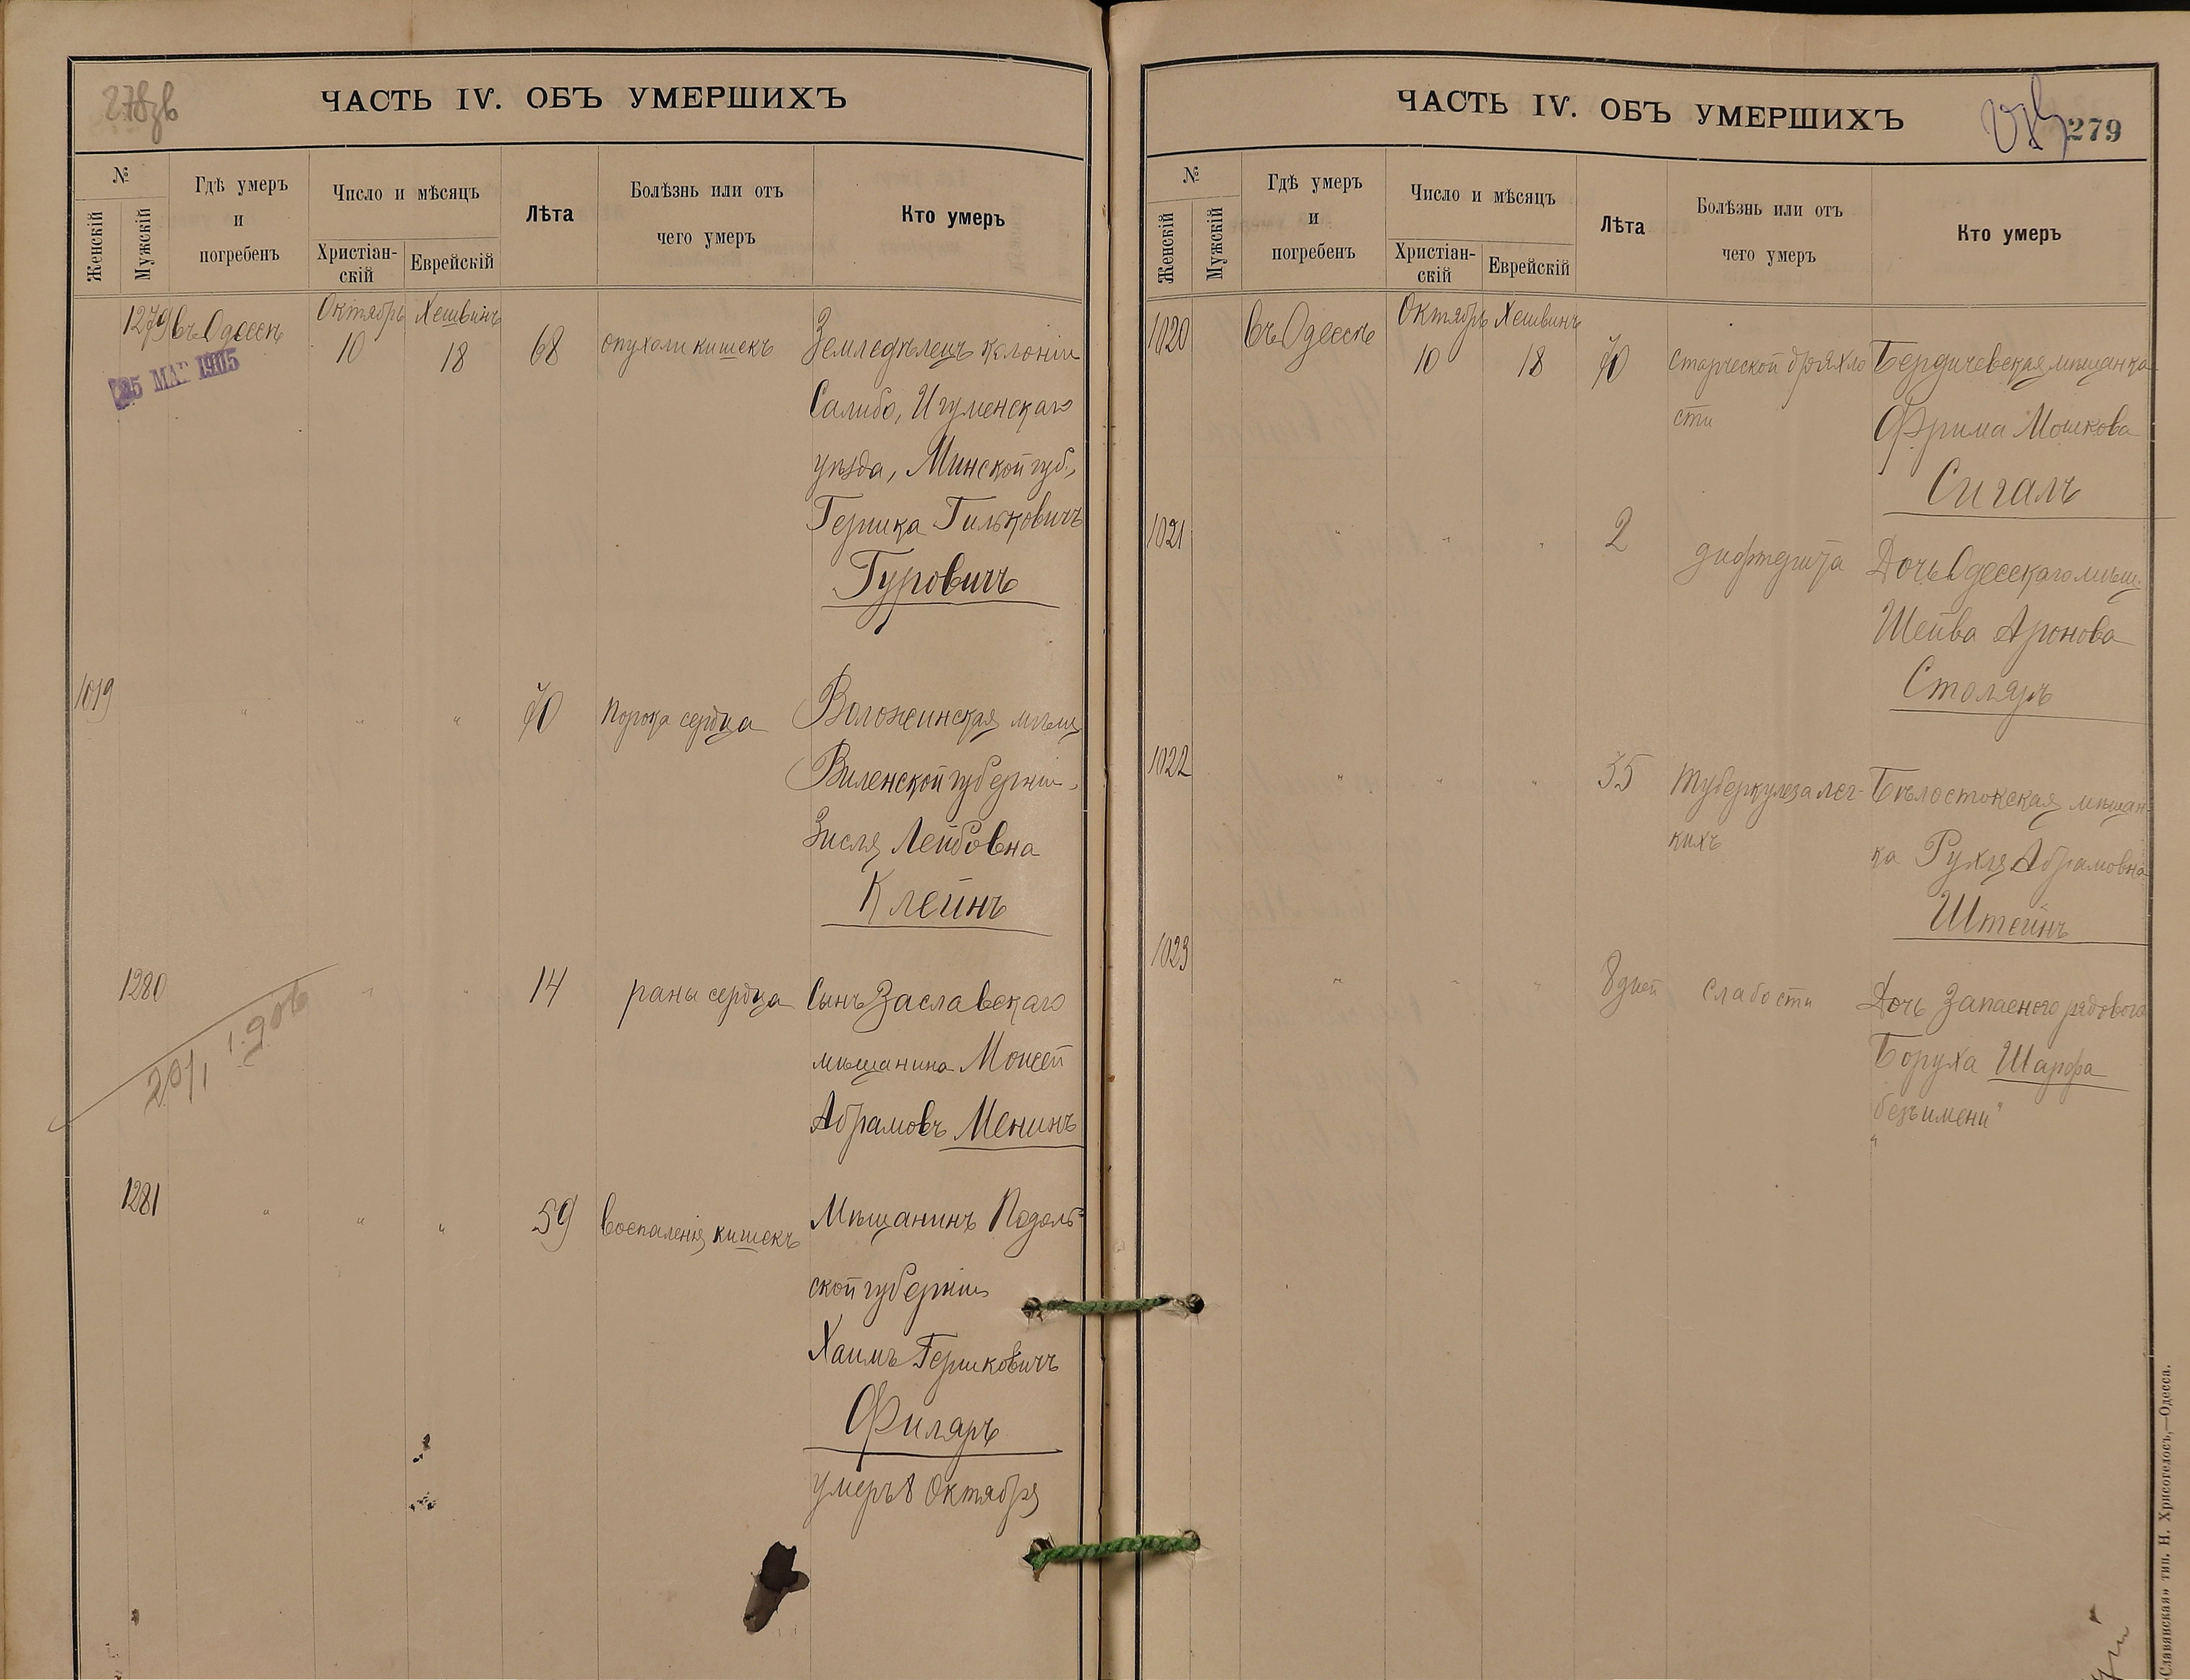 278
ЧАСТЬ IV. ОБЪ УМЕРШИХЪ
№
Женскій
Мужскій
Гдѣ умеръ
и
погребенъ
Число и мѣсяцъ
Христіан-
скій
Еврейскій
Лѣта
Болѣзнь или отъ
чего умеръ
Кто умеръ
1279 въ Одессѣ Октябрь Хешвинъ
10 18 68 опухоли кишекъ Земледѣлецъ колоніи
25 МАР 1905
Салибо, Игуменскаго
уѣзда, Минской губ.,
Гершка Гильковичъ
Гуровичъ
1019 " " " 70 порока сердца Воложинская мѣщ
Виленской губерніи
Зисля Лейбовна
Клейнъ
1280 " " 14 раны сердца Сынъ Заславскаго
20/1 1906
мѣщанина Мошей
Абрамовъ Менинъ
1281 " " " 59 воспаленія кишекъ Мѣщанинъ Подоль-
ской губерніи
Хаимъ Гершковичъ
Филяръ
умеръ 8 Октября
ЧАСТЬ IV. ОБЪ УМЕРШИХЪ
279
№
Женскій
Мужскій
Гдѣ умеръ
и
погребенъ
Число и мѣсяцъ
Христіан-
скій
Еврейскій
Лѣта
Болѣзнь или отъ
чего умеръ
Кто умеръ
1020 въ Одессѣ Октябрь Хешвинъ
10 18 70 старческой дряхло Бердичевская мѣщанка
сти Фрима Мошкова
Сигалъ
1021 " " " 2 дифтерита Дочь Одесскаго мѣщ.
Шейва Аронова
Столяръ
1022 " " " 35 туберкулеза лег- Бѣлостокская мѣщан-
кихъ ка Рухля Абрамовна
Штейнъ
1023 " " " 8 дней слабости Дочь Запаснаго рядового
Боруха Шарфа
"безъ имени"
«Славянская» тип. Н. Хрисогелосъ,—Одесса.